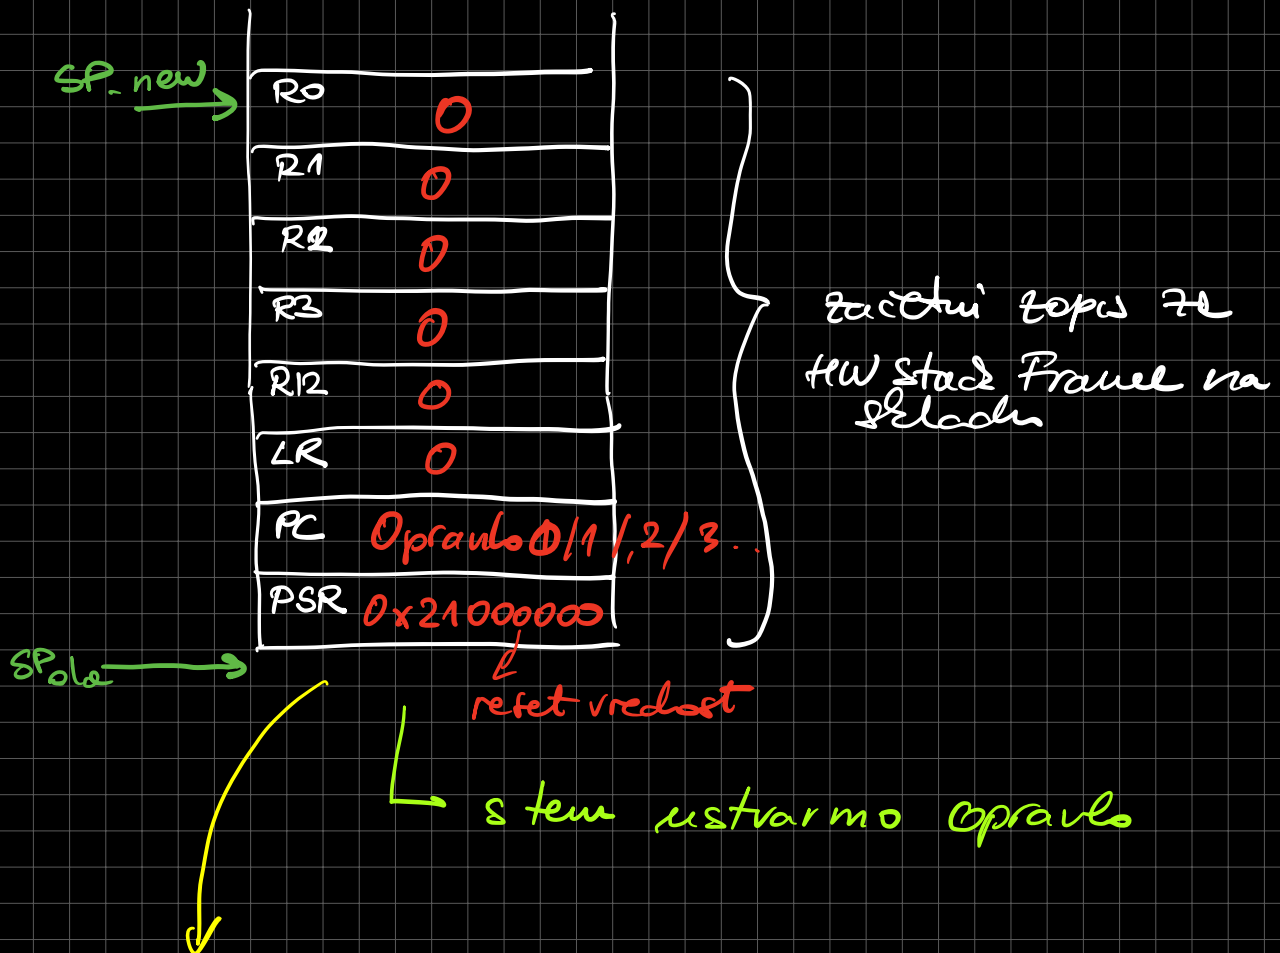 SP_new
R0 0
R1 0
R2 0
R3 0
R12 0
LR 0
PC Opravilo 0/1/2/3...
PSR 0x21000000
SP old
reset vrednost
začetni zapis za
HW Stack Frame na
skladu
s tem ustvarmo opravilo